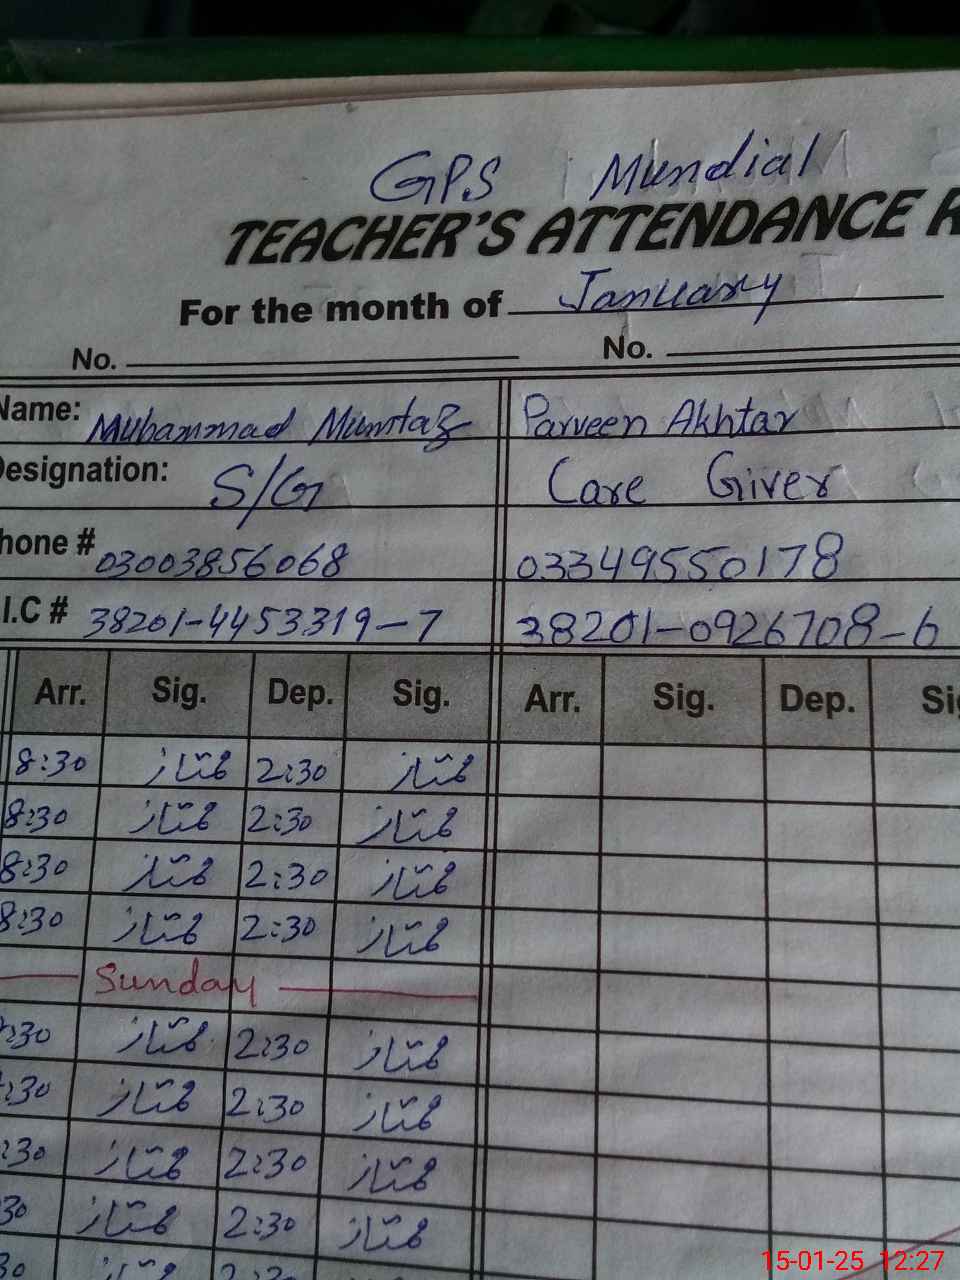 GPS Mundial
TEACHER'S ATTENDANCE R
For the month of January
No. No.
Name: Muhammad Mumtaz Parveen Akhtar
Designation: S/G Care Giver
hone # 03003856068 033495550178
.I.C # 38201-4453319-7 38201-0926708-6
Arr. Sig. Dep. Sig. Arr. Sig. Dep. Sig
8:30 ممتاز 2:30 ممتاز
8:30 ممتاز 2:30 ممتاز
8:30 ممتاز 2:30 ممتاز
8:30 ممتاز 2:30 ممتاز
Sunday
:30 ممتاز 2:30 ممتاز
:30 ممتاز 2:30 ممتاز
:30 ممتاز 2:30 ممتاز
30 ممتاز 2:30 ممتاز
30 ممتاز 2:30 ممتاز
15-01-25 12:27